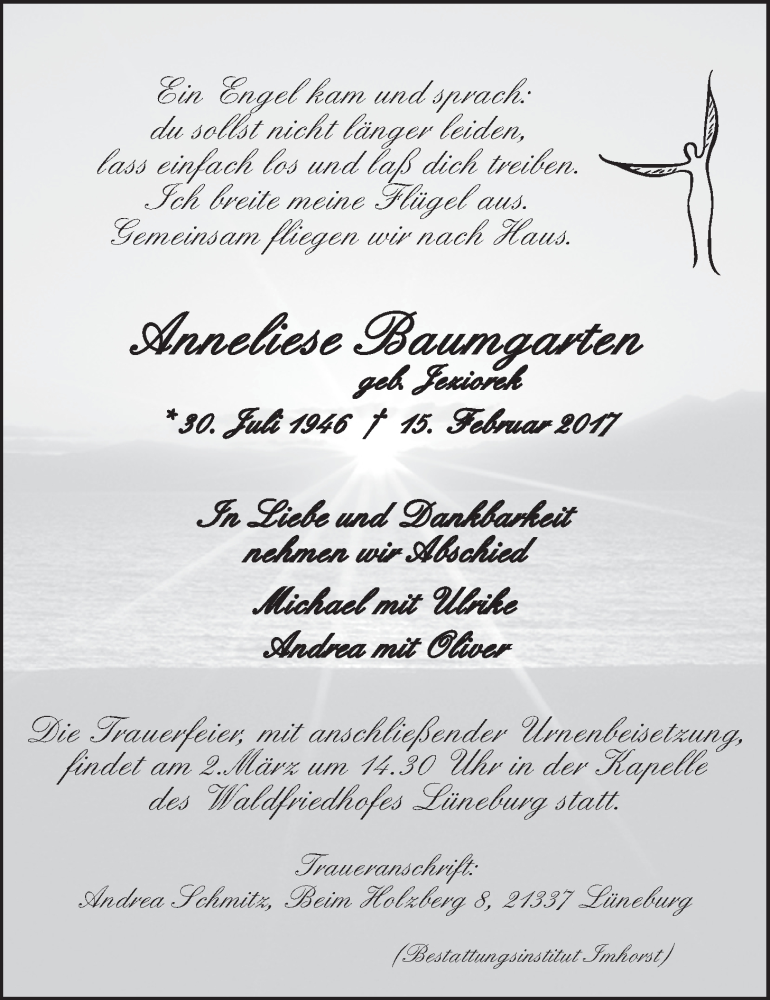 Ein Engel kam und sprach:
du sollst nicht länger leiden,
lass einfach los und laß dich treiben.
Ich breite meine Flügel aus.
Gemeinsam fliegen wir nach Haus.
Anneliese Baumgarten
geb. Jeziorek
* 30. Juli 1946 † 15. Februar 2017
In Liebe und Dankbarkeit
nehmen wir Abschied
Michael mit Ulrike
Andrea mit Oliver
Die Trauerfeier, mit anschließender Urnenbeisetzung,
findet am 2.März um 14.30 Uhr in der Kapelle
des Waldfriedhofes Lüneburg statt.
Traueranschrift:
Andrea Schmitz, Beim Holzberg 8, 21337 Lüneburg
(Bestattungsinstitut Imhorst)